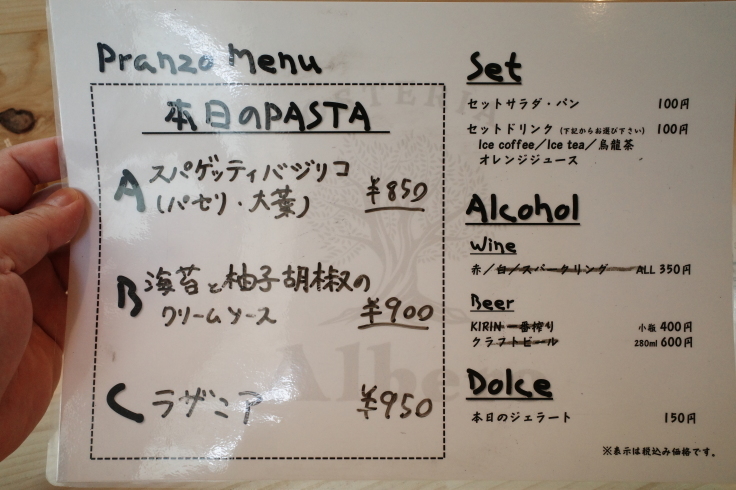 Pranzo Menu
本日のPASTA
A スパゲッティバジリコ
(パセリ・大葉) ¥850
B 海苔と柚子胡椒の
クリームソース ¥900
C ラザニア ¥950
Set
セットサラダ・パン 100円
セットドリンク (下記からお選び下さい) 100円
Ice coffee/Ice tea/烏龍茶
オレンジジュース
Alcohol
Wine
赤/白/スパークリング ALL 350円
Beer
KIRIN 一番搾り 小瓶 400円
クラフトビール 280ml 600円
Dolce
本日のジェラート 150円
※表示は税込み価格です。
Albero